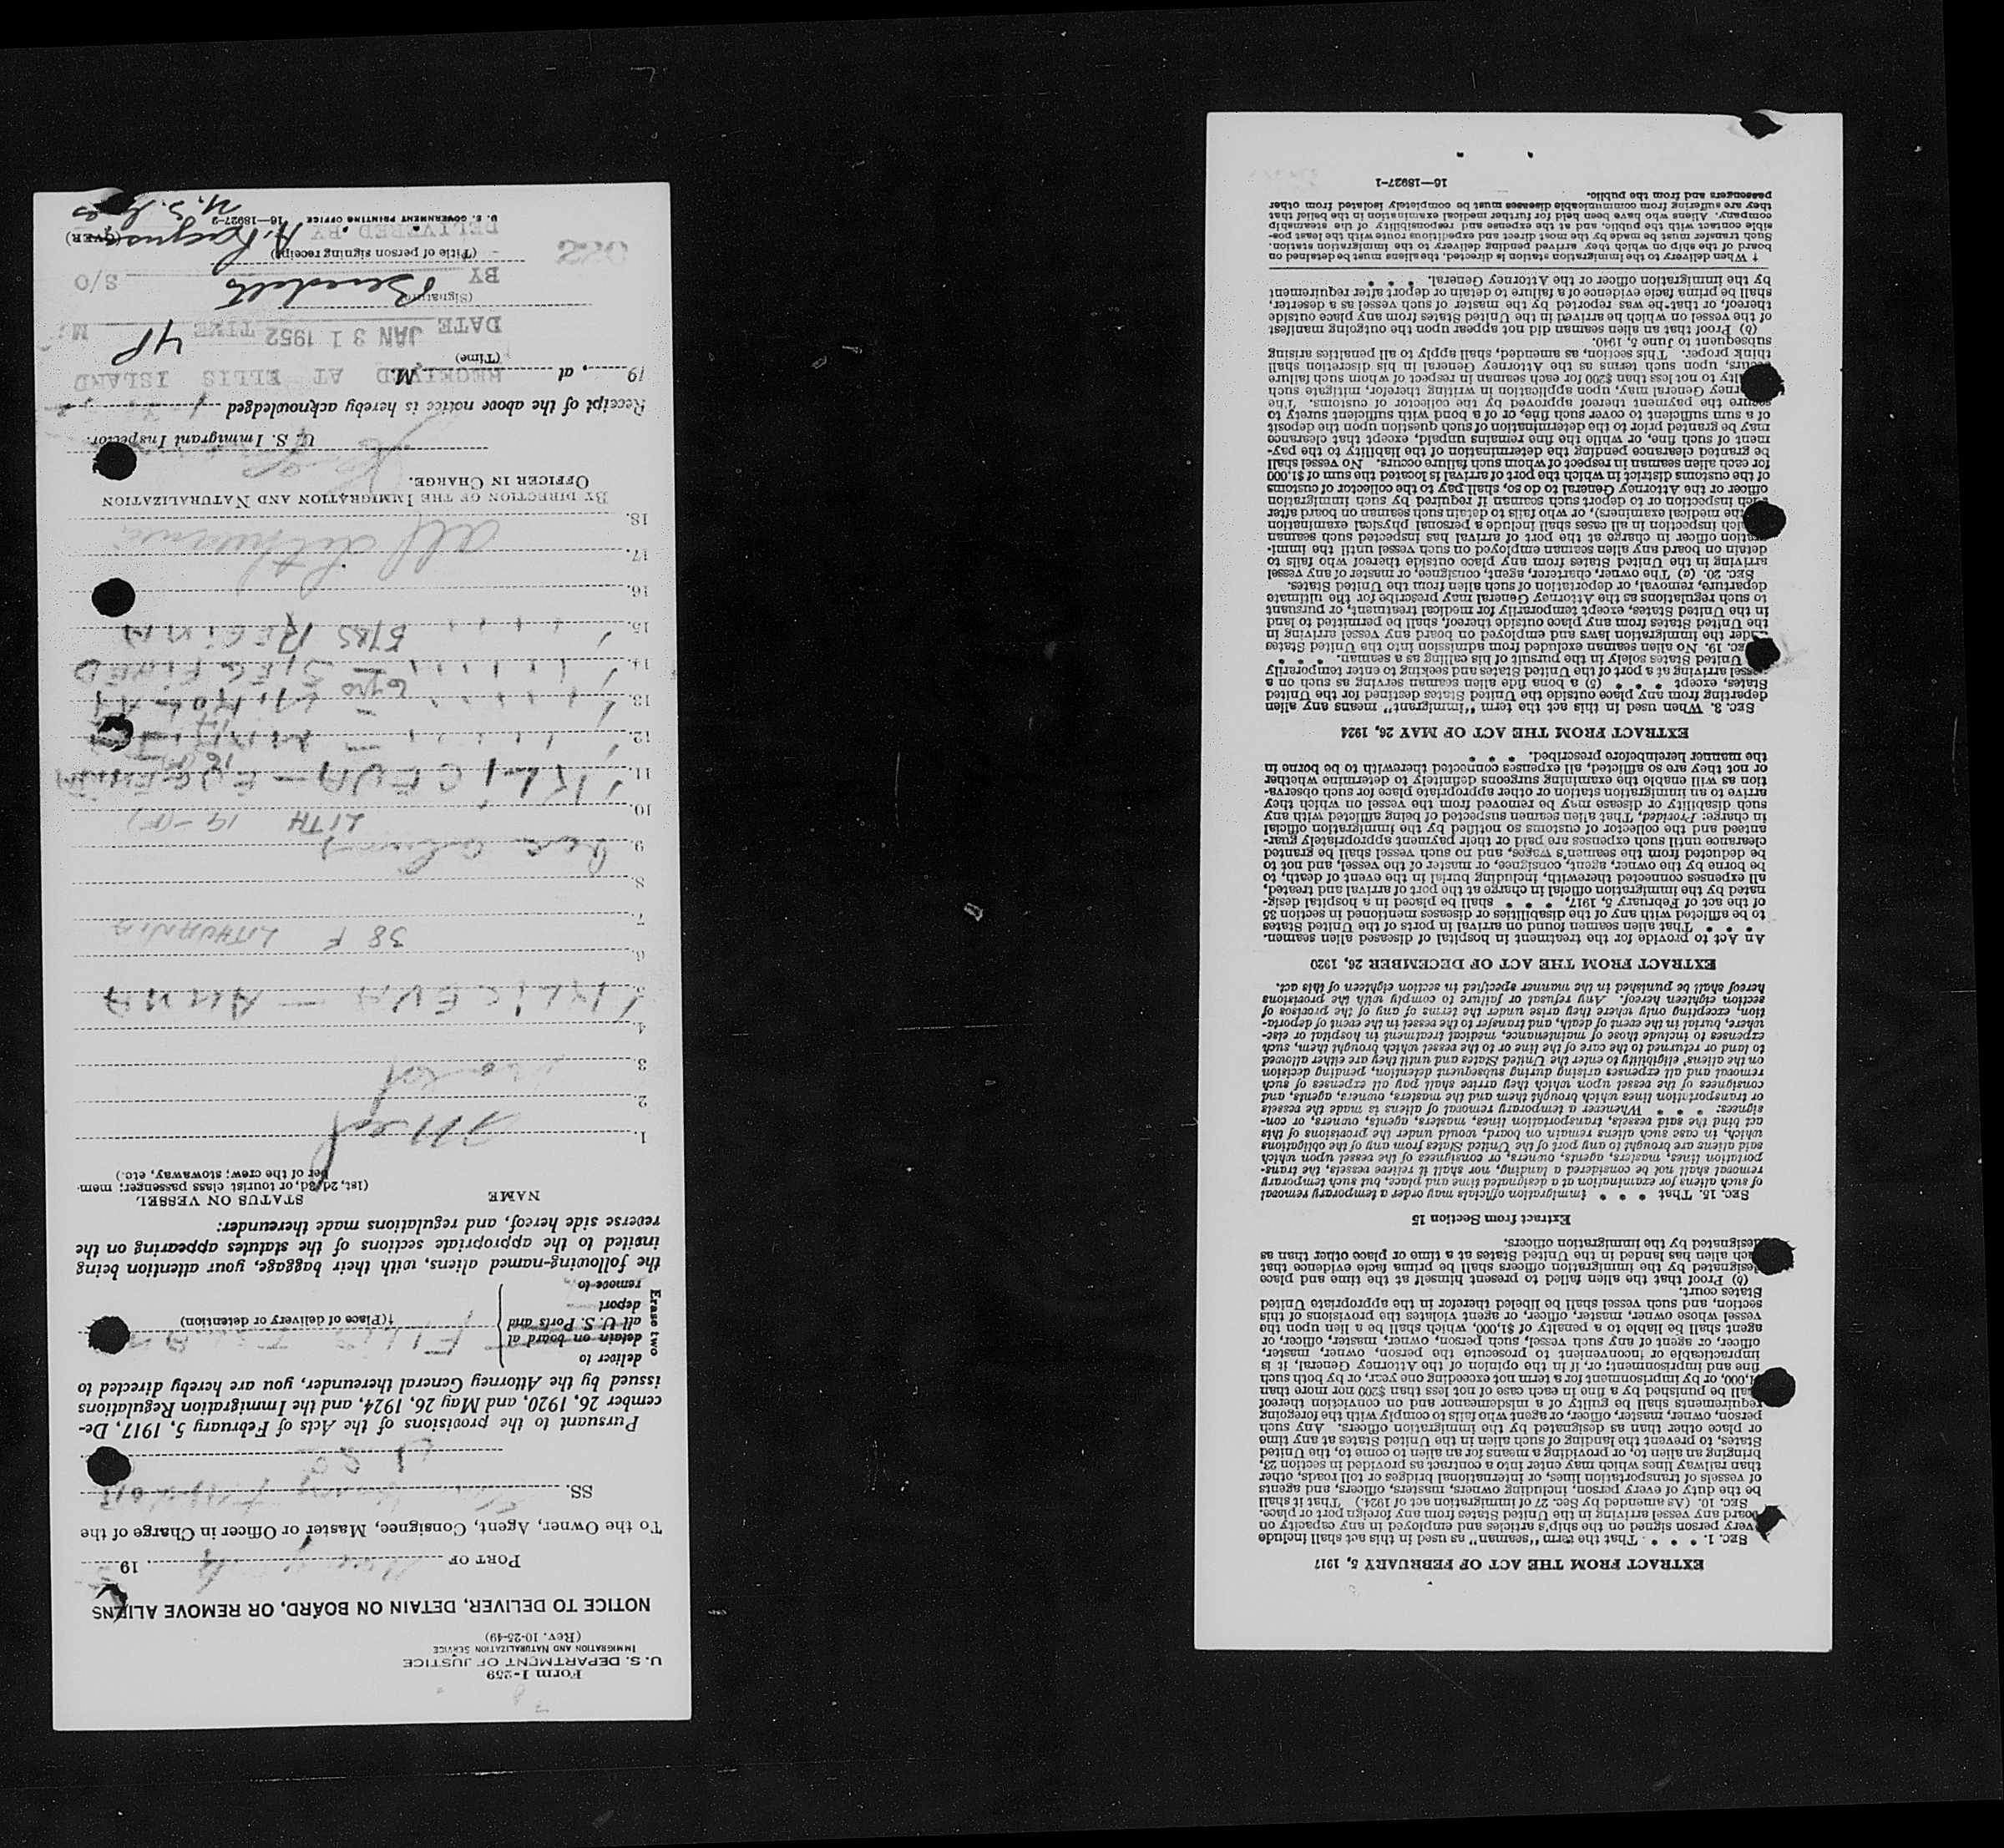 Form I-259
U. S. DEPARTMENT OF JUSTICE
IMMIGRATION AND NATURALIZATION SERVICE
(Rev. 10-25-49)
NOTICE TO DELIVER, DETAIN ON BOARD, OR REMOVE ALIENS
PORT OF 19
To the Owner, Agent, Consignee, Master or Officer in Charge of the
SS.
Pursuant to the provisions of the Acts of February 5, 1917, De-
cember 26, 1920, and May 26, 1924, and the Immigration Regulations
issued by the Attorney General thereunder, you are hereby directed to
Erase two
deliver to
detain on board at
all U. S. Ports and
deport
remove to
ELLIS ISLAND
†(Place of delivery or detention)
the following-named aliens, with their baggage, your attention being
invited to the appropriate sections of the statutes appearing on the
reverse side hereof, and regulations made thereunder:
NAME STATUS ON VESSEL
(1st, 2d, 3d, or tourist class passenger; mem-
ber of the crew; stowaway, etc.)
1.
2.
3.
4.
5. KLICEVA - ANNA
6. 38 F LITHUANIA
7.
8.
9.
10. LITH 19-(F)
11. KLICEVA - EUGENIA
12.
13.
14. SIEGFRIED
15. REGINA
16.
17. all Lithuania
18.
BY DIRECTION OF THE IMMIGRATION AND NATURALIZATION
OFFICER IN CHARGE.
U. S. Immigrant Inspector.
Receipt of the above notice is hereby acknowledged
19, at M.
(Time)
RECEIVED AT ELLIS ISLAND
DATE JAN 31 1952 TIME 4P M.
(Signature)
BY Benedetto S/O
(Title of person signing receipt)
DELIVERED BY
(OVER)
U. S. GOVERNMENT PRINTING OFFICE 16—18927-2
EXTRACT FROM THE ACT OF FEBRUARY 5, 1917
SEC. 1. * * * That the term "seaman" as used in this act shall include
every person signed on the ship's articles and employed in any capacity on
board any vessel arriving in the United States from any foreign port or place.
SEC. 10. (As amended by Sec. 27 of immigration act of 1924.) That it shall
be the duty of every person, including owners, masters, officers, and agents
of vessels of transportation lines, or international bridges or toll roads, other
than railway lines which may enter into a contract as provided in section 23,
bringing an alien to, or providing a means for an alien to come to, the United
States, to prevent the landing of such alien in the United States at any time
or place other than as designated by the immigration officers. Any such
person, owner, master, officer, or agent who fails to comply with the foregoing
requirements shall be guilty of a misdemeanor and on conviction thereof
shall be punished by a fine in each case of not less than $200 nor more than
$1,000, or by imprisonment for a term not exceeding one year, or by both such
fine and imprisonment; or, if in the opinion of the Attorney General, it is
impracticable or inconvenient to prosecute the person, owner, master,
officer, or agent of any such vessel, such person, owner, master, officer, or
agent shall be liable to a penalty of $1,000, which shall be a lien upon the
vessel whose owner, master, officer, or agent violates the provisions of this
section, and such vessel shall be libeled therefor in the appropriate United
States court.
(b) Proof that the alien failed to present himself at the time and place
designated by the immigration officers shall be prima facie evidence that
such alien has landed in the United States at a time or place other than as
designated by the immigration officers.
Extract from Section 15
SEC. 15. That * * * immigration officials may order a temporary removal
of such aliens for examination at a designated time and place, but such temporary
removal shall not be considered a landing, nor shall it relieve vessels, the trans-
portation lines, masters, agents, owners, or consignees of the vessel upon which
said aliens are brought to any port of the United States from any of the obligations
which, in case such aliens remain on board, would under the provisions of this
act bind the said vessels, transportation lines, masters, agents, owners, or con-
signees: * * * Whenever a temporary removal of aliens is made the vessels
or transportation lines which brought them and the masters, owners, agents, and
consignees of the vessel upon which they arrive shall pay all expenses of such
removal and all expenses arising during subsequent detention, pending decision
on the aliens' eligibility to enter the United States and until they are either allowed
to land or returned to the care of the line or to the vessel which brought them, such
expenses to include those of maintenance, medical treatment in hospital or else-
where, burial in the event of death, and transfer to the vessel in the event of deporta-
tion, excepting only where they arise under the terms of any of the provisos of
section eighteen hereof. Any refusal or failure to comply with the provisions
hereof shall be punished in the manner specified in section eighteen of this act.
EXTRACT FROM THE ACT OF DECEMBER 26, 1920
An Act to provide for the treatment in hospital of diseased alien seamen.
* * * That alien seamen found on arrival in ports of the United States
to be afflicted with any of the disabilities or diseases mentioned in section 35
of the act of February 5, 1917, * * * shall be placed in a hospital desig-
nated by the immigration official in charge at the port of arrival and treated,
all expenses connected therewith, including burial in the event of death, to
be borne by the owner, agent, consignee, or master of the vessel, and not to
be deducted from the seamen's wages, and no such vessel shall be granted
clearance until such expenses are paid or their payment appropriately guar-
anteed and the collector of customs so notified by the immigration official
in charge: Provided, That alien seamen suspected of being afflicted with any
such disability or disease may be removed from the vessel on which they
arrive to an immigration station or other appropriate place for such observa-
tion as will enable the examining surgeons definitely to determine whether
or not they are so afflicted, all expenses connected therewith to be borne in
the manner hereinbefore prescribed. * * *
EXTRACT FROM THE ACT OF MAY 26, 1924
SEC. 3. When used in this act the term "immigrant" means any alien
departing from any place outside the United States destined for the United
States, except * * * (5) a bona fide alien seaman serving as such on a
vessel arriving at a port of the United States and seeking to enter temporarily
United States solely in the pursuit of his calling as a seaman. * * *
SEC. 19. No alien seaman excluded from admission into the United States
under the immigration laws and employed on board any vessel arriving in
the United States from any place outside thereof, shall be permitted to land
in the United States, except temporarily for medical treatment, or pursuant
to such regulations as the Attorney General may prescribe for the ultimate
departure, removal, or deportation of such alien from the United States.
SEC. 20. (a) The owner, charterer, agent, consignee, or master of any vessel
arriving in the United States from any place outside thereof who fails to
detain on board any alien seaman employed on such vessel until the immi-
gration officer in charge at the port of arrival has inspected such seaman
(which inspection in all cases shall include a personal physical examination
by the medical examiners), or who fails to detain such seaman on board after
such inspection or to deport such seaman if required by such immigration
officer or the Attorney General to do so, shall pay to the collector of customs
of the customs district in which the port of arrival is located the sum of $1,000
for each alien seaman in respect of whom such failure occurs. No vessel shall
be granted clearance pending the determination of the liability to the pay-
ment of such fine, or while the fine remains unpaid, except that clearance
may be granted prior to the determination of such question upon the deposit
of a sum sufficient to cover such fine, or of a bond with sufficient surety to
secure the payment thereof approved by the collector of customs. The
Attorney General may, upon application in writing therefor, mitigate such
penalty to not less than $200 for each seaman in respect of whom such failure
occurs, upon such terms as the Attorney General in his discretion shall
think proper. This section, as amended, shall apply to all penalties arising
subsequent to June 5, 1940.
(b) Proof that an alien seaman did not appear upon the outgoing manifest
of the vessel on which he arrived in the United States from any place outside
thereof, or that he was reported by the master of such vessel as a deserter,
shall be prima facie evidence of a failure to detain or deport after requirement
by the immigration officer or the Attorney General. * * *
† When delivery to the immigration station is directed, the aliens must be detained on
board of the ship on which they arrived pending delivery to the immigration station.
Such transfer must be made by the most direct and expeditious route with the least pos-
sible contact with the public, and at the expense and responsibility of the steamship
company. Aliens who have been held for further medical examination in the belief that
they are suffering from communicable diseases must be completely isolated from other
passengers and from the public.
16—18927-1